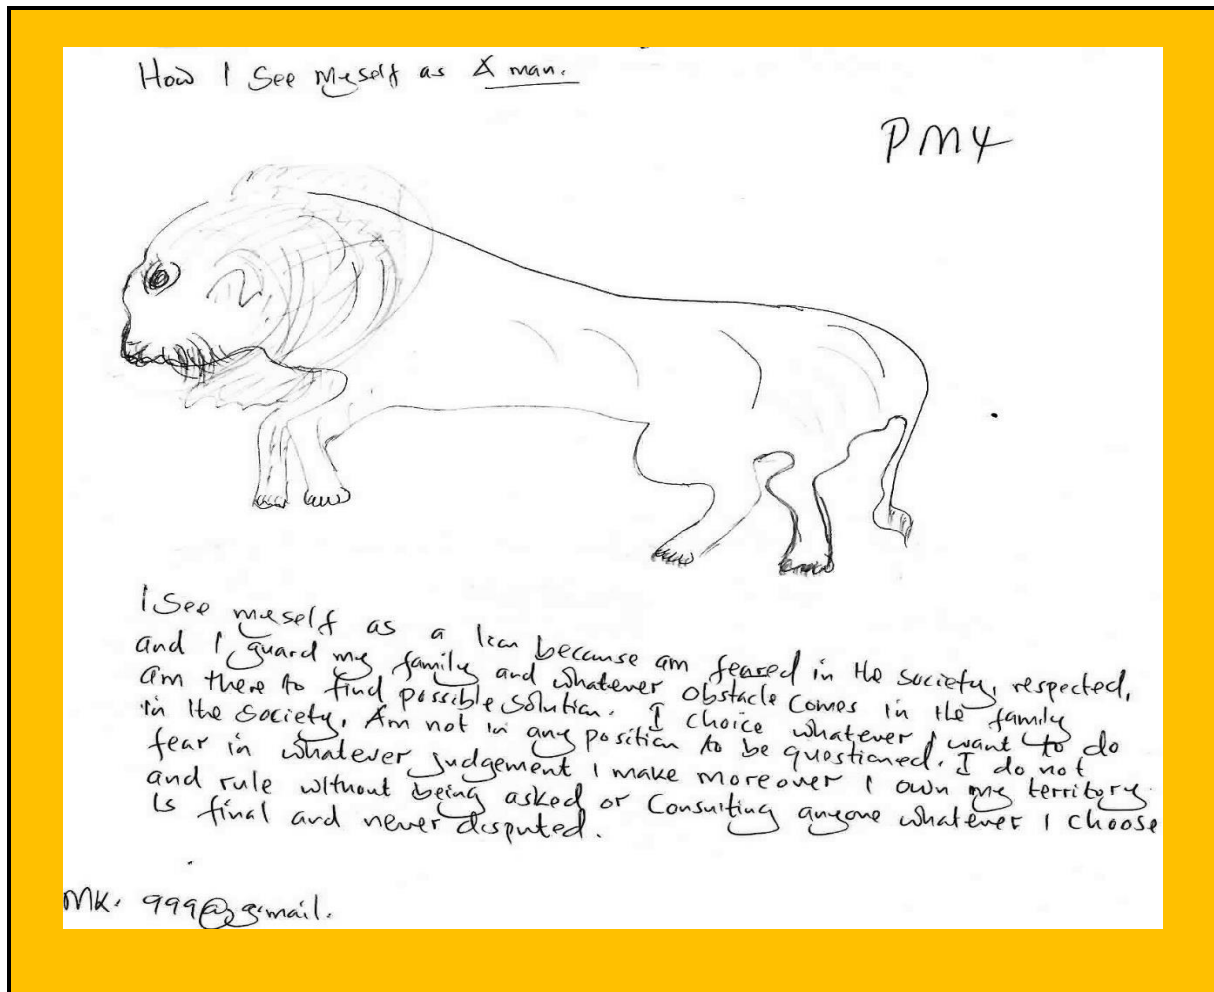 How I See myself as A man.
PM4
I See myself as a lion because am feared in the society, respected,
and I guard my family and whatever obstacle comes in the family
am there to find possible solution. I choice whatever I want to do
in the society. Am not in any position to be questioned. I do not
fear in whatever judgement I make moreover I own my territory.
and rule without being asked or Consulting anyone whatever I choose
is final and never disputed.
MK. 999@gmail.